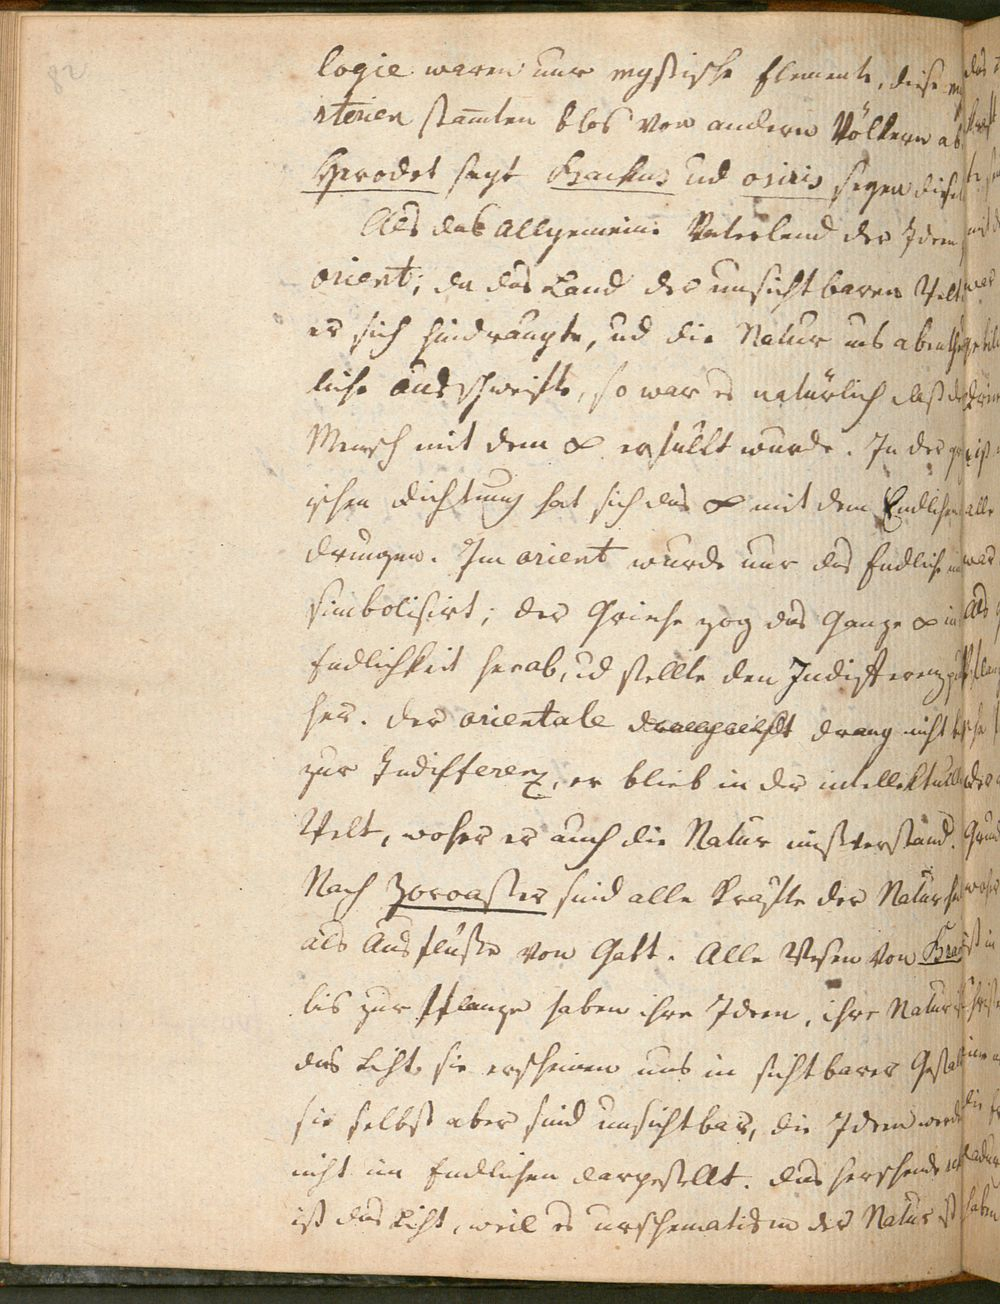 82
logie waren nur mystische Elemente, diese my
sterien stam̅ten blos von andern Völkern ab
Herodot sagt Bachus ud osiris seyen die
Als das allgemeine Vaterland der Ideen
orient; da das Land der unsichtbaren Welt
er sich hindrängte, ud die Natur ins abentheu
liche ausschweifte, so war es natürlich daß d
Mensch mit dem ∞ erfüllt wurde. In der gr
ischen Dichtung hat sich das ∞ mit dem Endlichen
drungen. Im orient wurde nur das Endliche
simbolisirt; der Grieche zog das Ganze ∞ in
Endlichkeit herab, ud stellte den Indifferenzpu
her. Der orientale drang nicht
zur Indifferenz, er blieb in der intellektuell
Welt, woher er auch die Natur mißverstand.
Nach Zoroaster sind alle Kräfte der Natur
als Ausflüße von Gott. Alle Wesen von
bis zur Pflanze haben ihre Ideen, ihre Natur
das Licht, sie erscheinen uns in sichtbarer Gestal
sie selbst aber sind unsichtbar, die Ideen werd
nicht im Endlichen dargestellt. Das herschende
ist das Licht, weil es urschematism der Natur ist